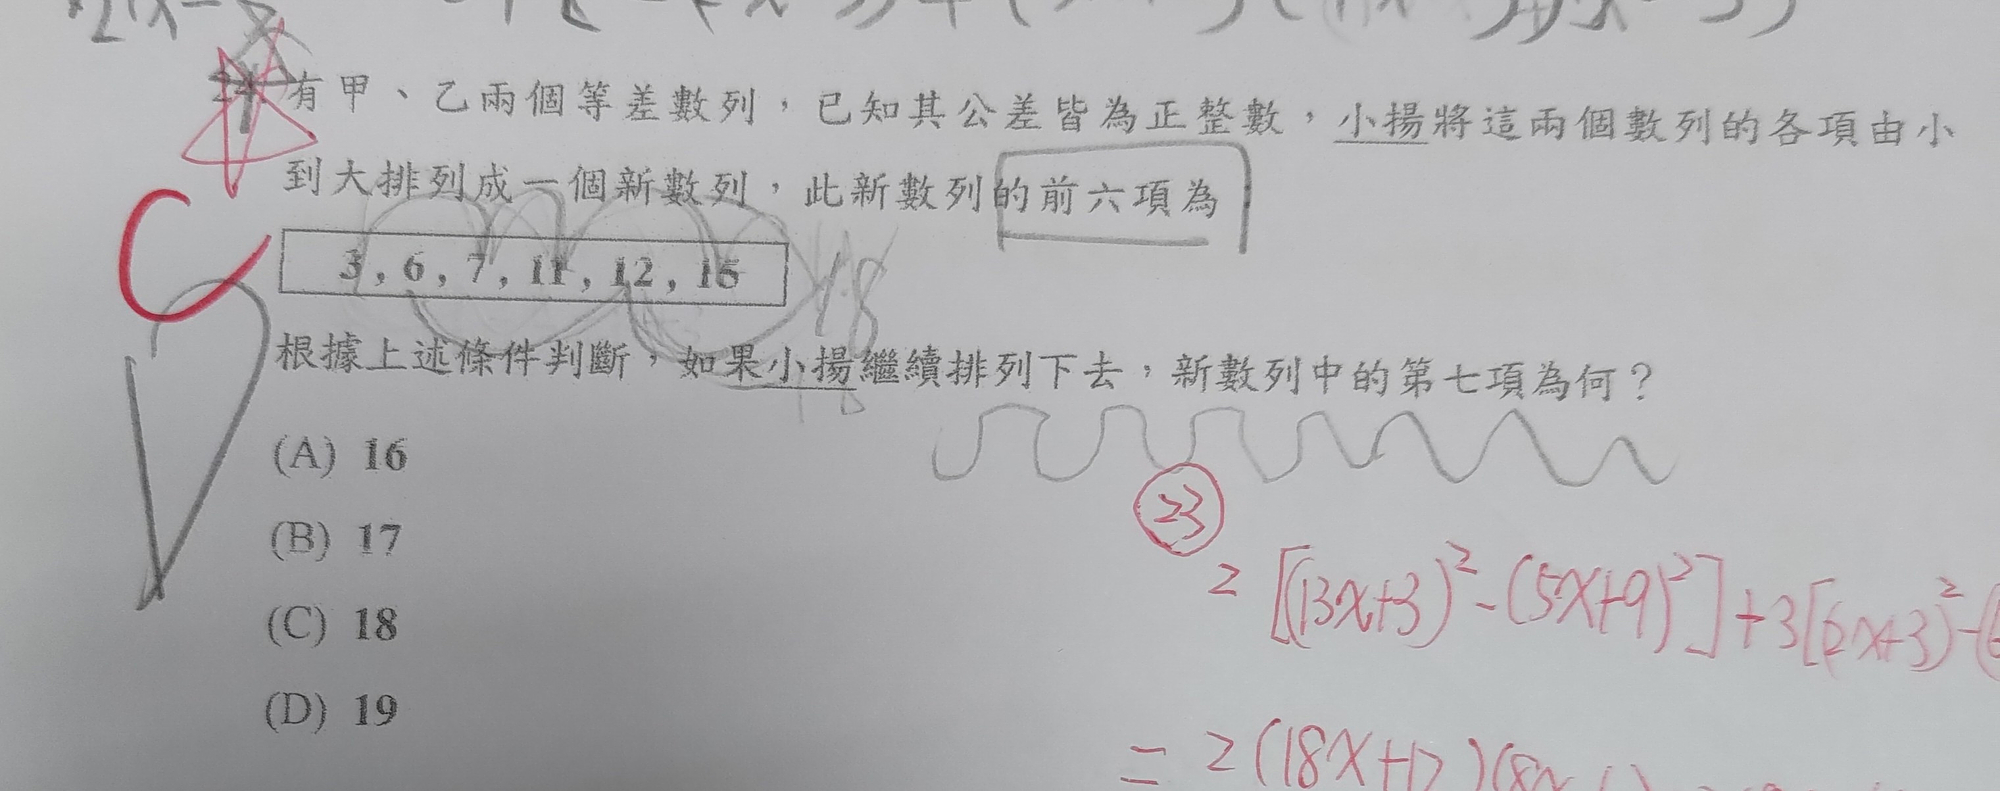 24. 有甲、乙兩個等差數列，已知其公差皆為正整數，小揚將這兩個數列的各項由小
到大排列成一個新數列，此新數列的前六項為
C
3, 6, 7, 11, 12, 15
18
根據上述條件判斷，如果小揚繼續排列下去，新數列中的第七項為何？
18
(A) 16
(B) 17
(C) 18
(D) 19
23
2[(13x+3)²-(5x+9)²]+3[(2x+3)²-(
= 2(18x+12)(8x